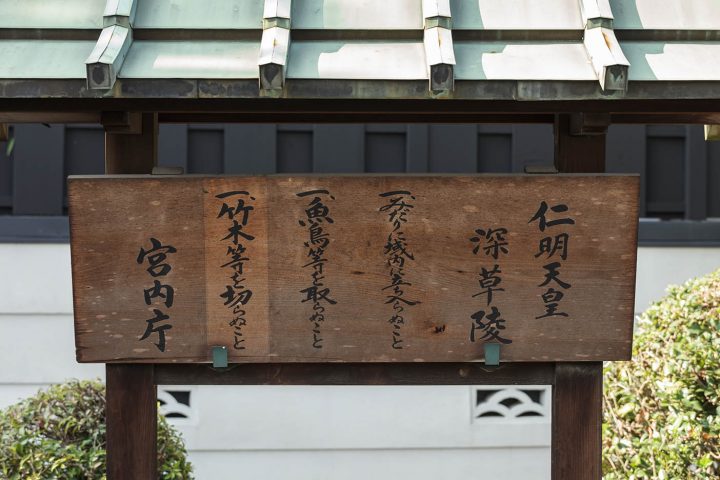 仁明天皇
深草陵
一、みだりに域内に立ち入らぬこと
一、魚鳥等を取らぬこと
一、竹木等を切らぬこと
宮内庁